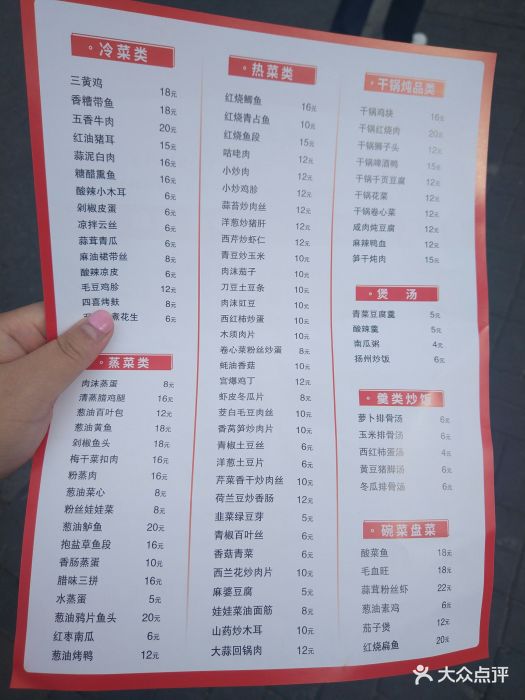 ·冷菜类
三黄鸡 18元
香糟带鱼 18元
五香牛肉 20元
红油猪耳 15元
蒜泥白肉 16元
糖醋熏鱼 16元
酸辣小木耳 6元
剁椒皮蛋 6元
凉拌云丝 6元
蒜茸青瓜 6元
麻油裙带丝 8元
酸辣凉皮 6元
毛豆鸡胗 12元
四喜烤麸 8元
煮花生 6元
·蒸菜类
肉沫蒸蛋 8元
清蒸腊鸡腿 16元
葱油百叶包 12元
葱油黄鱼 18元
剁椒鱼头 18元
梅干菜扣肉 16元
粉蒸肉 16元
葱油菜心 8元
粉丝娃娃菜 8元
葱油鲈鱼 20元
抱盐草鱼段 16元
香肠蒸蛋 10元
腊味三拼 16元
水蒸蛋 5元
葱油鸦片鱼头 20元
红枣南瓜 6元
葱油烤鸭 12元
·热菜类
红烧鲫鱼 16元
红烧青占鱼 10元
红烧鱼段 15元
咕咾肉 12元
小炒肉 12元
小炒鸡胗 12元
蒜苔炒肉丝 12元
洋葱炒猪肝 12元
西芹炒虾仁 12元
青豆炒玉米 10元
肉沫茄子 10元
刀豆土豆条 10元
肉沫豇豆 10元
西红柿炒蛋 10元
木须肉片 10元
卷心菜粉丝炒蛋 8元
蚝油香菇 10元
宫爆鸡丁 12元
虾皮冬瓜片 8元
茭白毛豆肉丝 10元
香莴笋炒肉片 10元
青椒土豆丝 6元
洋葱土豆片 6元
芹菜香干炒肉丝 10元
荷兰豆炒香肠 12元
韭菜绿豆芽 5元
青椒百叶丝 6元
香菇青菜 5元
西兰花炒肉片 10元
麻婆豆腐 5元
娃娃菜油面筋 8元
山药炒木耳 10元
大蒜回锅肉 12元
·干锅炖品类
干锅鸡块 16元
干锅红烧肉 20元
干锅狮子头 12元
干锅啤酒鸭 15元
干锅千页豆腐 12元
干锅花菜 12元
干锅卷心菜 12元
咸肉炖豆腐 12元
麻辣鸭血 12元
笋干炖肉 15元
·煲 汤
青菜豆腐羹 5元
酸辣羹 5元
南瓜粥 4元
扬州炒饭 6元
·羹类炒饭
萝卜排骨汤 6元
玉米排骨汤 6元
西红柿蛋汤 4元
黄豆猪脚汤 6元
冬瓜排骨汤 6元
·碗菜盘菜
酸菜鱼 18元
毛血旺 18元
蒜茸粉丝虾 22元
葱油素鸡 6元
茄子煲 12元
红烧扁鱼 20元
大众点评